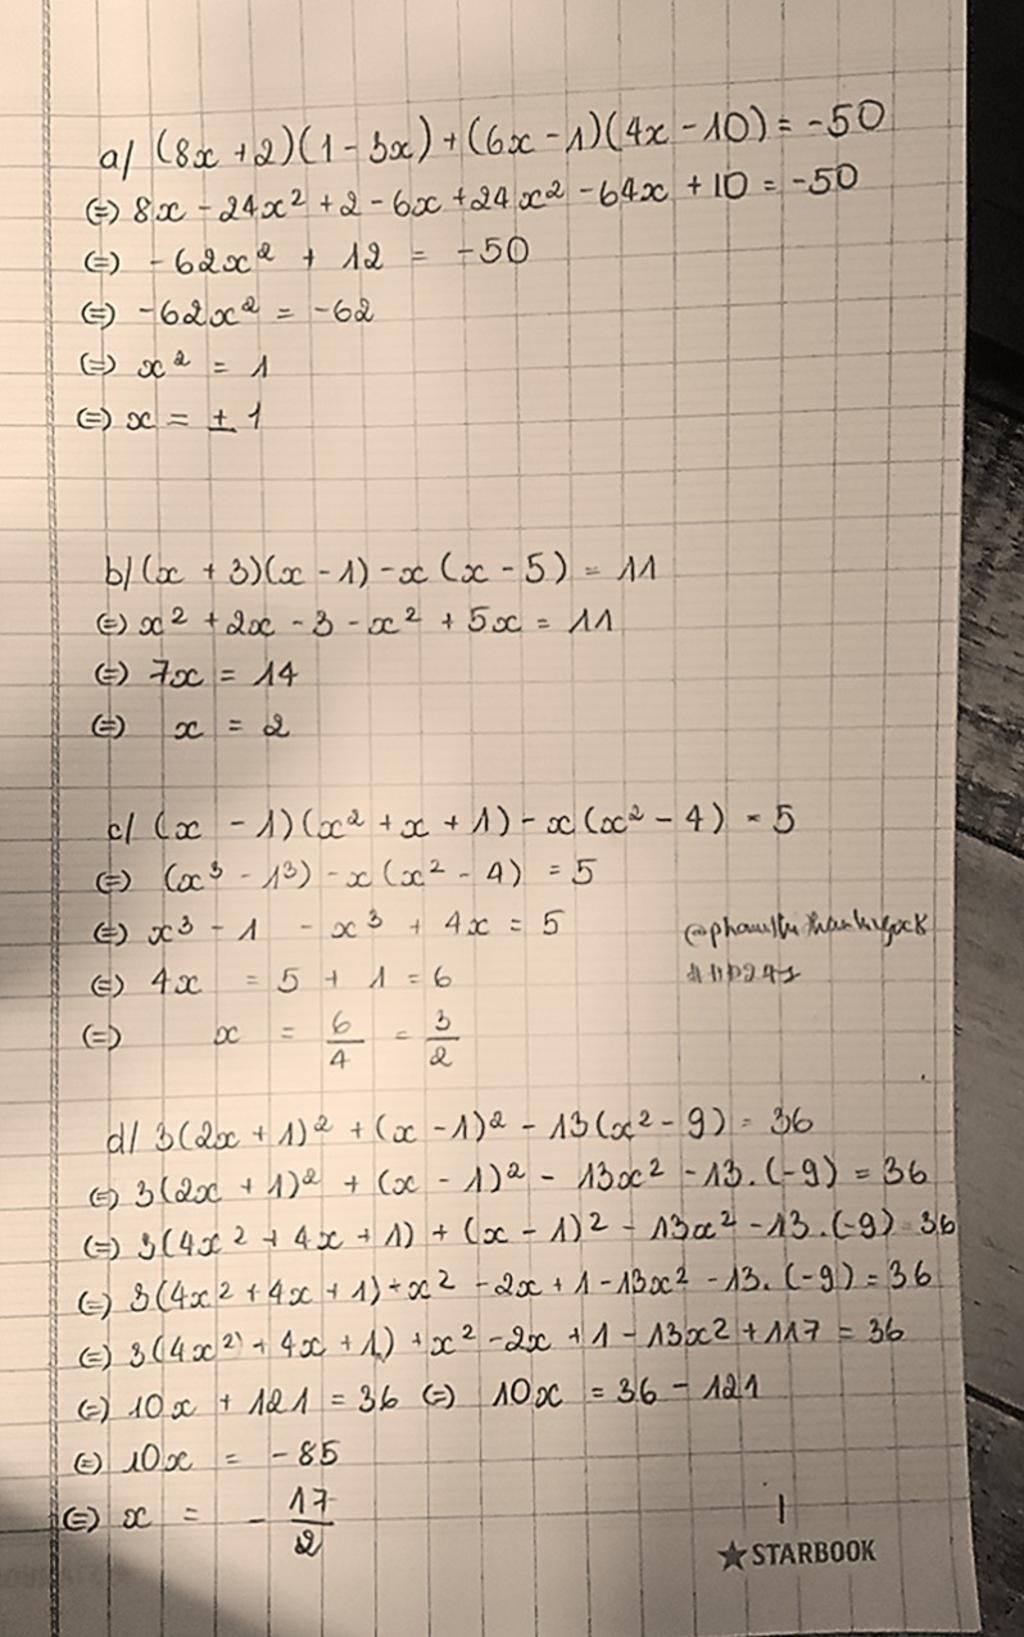 a/ (8x+2)(1-3x)+(6x-1)(4x-10)=-50
(=) 8x-24x²+2-6x+24x²-64x+10=-50
(=) -62x²+12=-50
(=) -62x²=-62
(=) x²=1
(=) x=±1
b/(x+3)(x-1)-x(x-5)=11
(=) x²+2x-3-x²+5x=11
(=) 7x=14
(=) x=2
c/ (x-1)(x²+x+1)-x(x²-4)=5
(=) (x³-1³)-x(x²-4)=5
(=) x³-1-x³+4x=5
(=) 4x=5+1=6
(=) x=6/4=3/2
d/ 3(2x+1)²+(x-1)²-13(x²-9)=36
(=) 3(2x+1)²+(x-1)²-13x²-13.(-9)=36
(=) 3(4x²+4x+1)+(x-1)²-13x²-13.(-9)=36
(=) 3(4x²+4x+1)+x²-2x+1-13x²-13.(-9)=36
(=) 3(4x²+4x+1)+x²-2x+1-13x²+117=36
(=) 10x+121=36 (=) 10x=36-121
(=) 10x=-85
(=) x=-17/2
STARBOOK